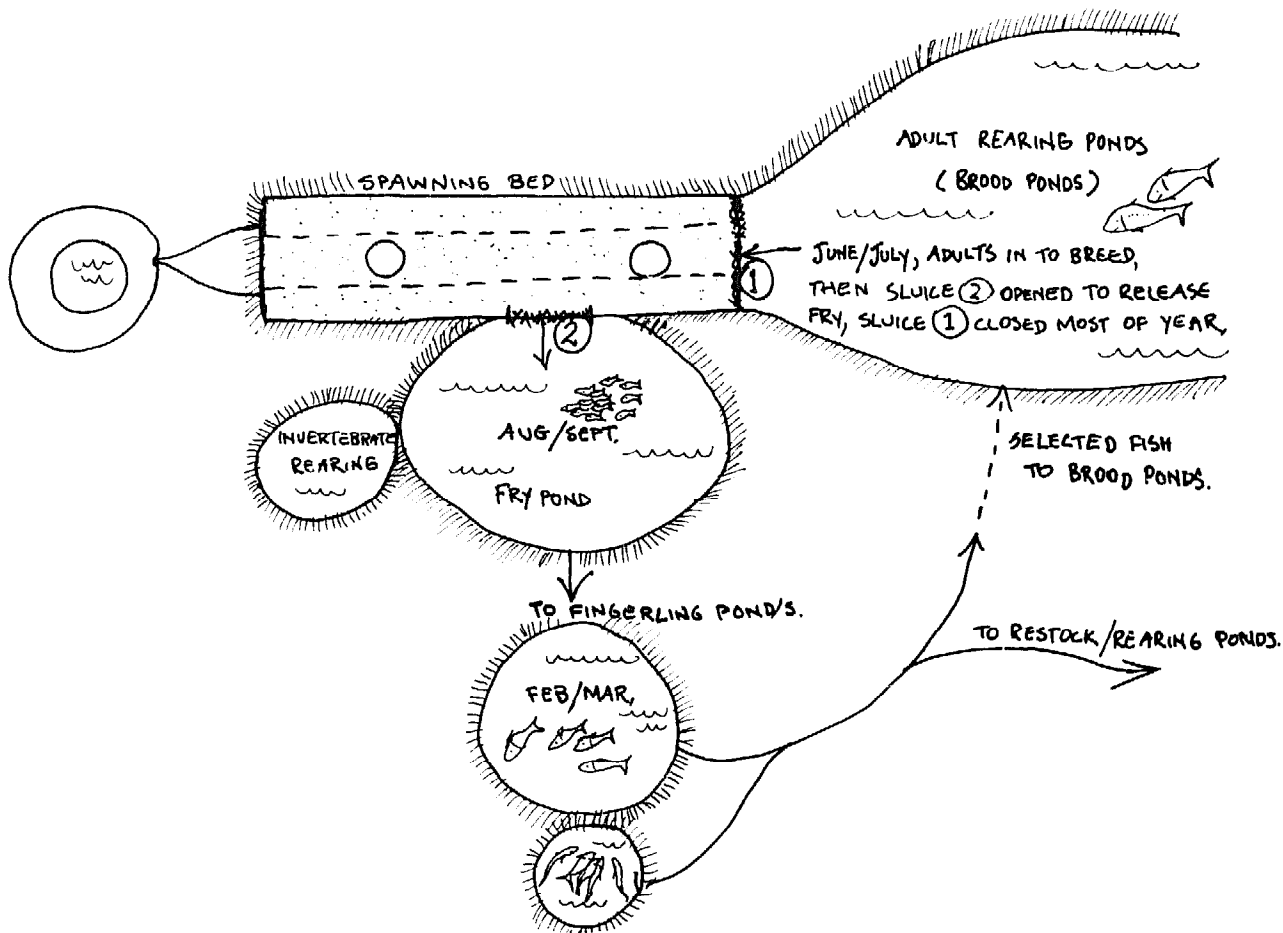 SPAWNING BED
ADULT REARING PONDS
(BROOD PONDS)
JUNE/JULY, ADULTS IN TO BREED,
THEN SLUICE ② OPENED TO RELEASE
FRY, SLUICE ① CLOSED MOST OF YEAR,
①
②
INVERTEBRATE
REARING
AUG/SEPT.
FRY POND
SELECTED FISH
TO BROOD PONDS.
TO FINGERLING POND/S.
FEB/MAR,
TO RESTOCK/REARING PONDS.